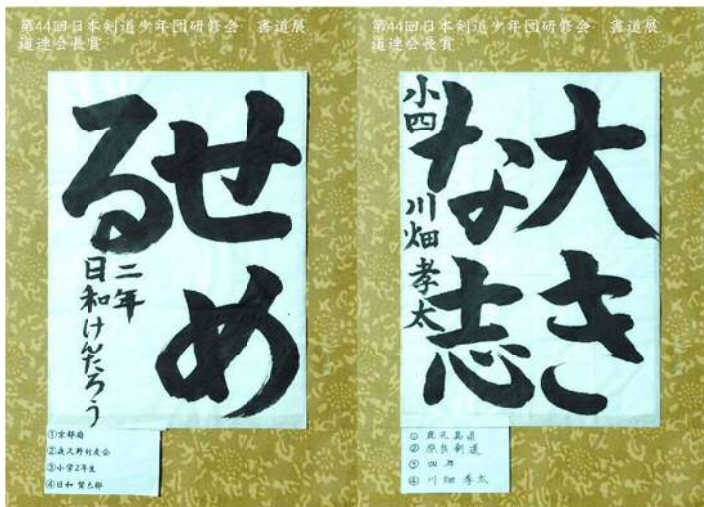 第44回日本剣道少年団研修会　書道展
道連会長賞
せめ
る
二年
日和けんたろう
①京都府
③小学2年生
④日和 賢太郎
第44回日本剣道少年団研修会　書道展
道連会長賞
大き
な志
小四 川畑孝太
① 鹿児島県
② 原良剣道
③ 四年
④ 川畑 孝太